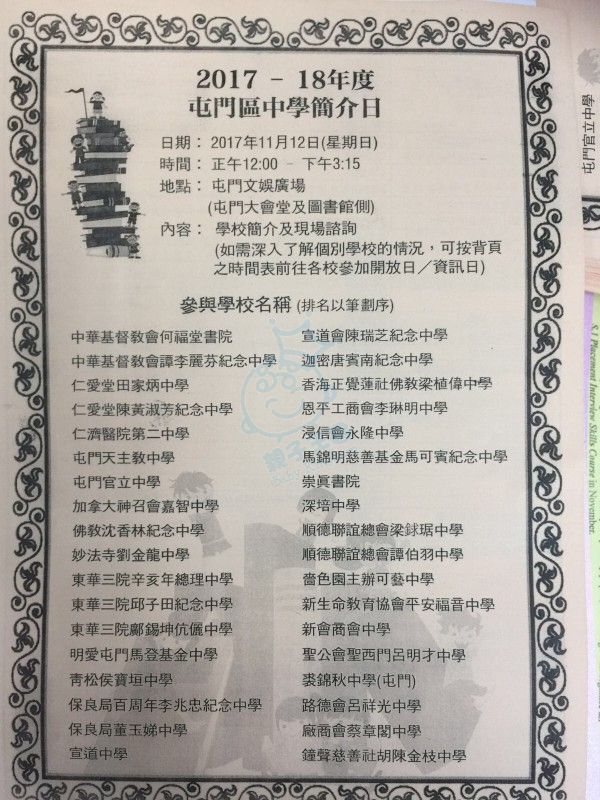 2017 - 18年度
屯門區中學簡介日
日期： 2017年11月12日(星期日)
時間： 正午12:00 - 下午3:15
地點： 屯門文娛廣場
(屯門大會堂及圖書館側)
內容： 學校簡介及現場諮詢
(如需深入了解個別學校的情況，可按背頁
之時間表前往各校參加開放日／資訊日)
參與學校名稱 (排名以筆劃序)
中華基督教會何福堂書院
中華基督教會譚李麗芬紀念中學
仁愛堂田家炳中學
仁愛堂陳黃淑芳紀念中學
仁濟醫院第二中學
屯門天主教中學
屯門官立中學
加拿大神召會嘉智中學
佛教沈香林紀念中學
妙法寺劉金龍中學
東華三院辛亥年總理中學
東華三院邱子田紀念中學
東華三院鄺錫坤伉儷中學
明愛屯門馬登基金中學
青松侯寶垣中學
保良局百周年李兆忠紀念中學
保良局董玉娣中學
宣道中學
宣道會陳瑞芝紀念中學
迦密唐賓南紀念中學
香海正覺蓮社佛教梁植偉中學
恩平工商會李琳明中學
浸信會永隆中學
馬錦明慈善基金馬可賓紀念中學
崇真書院
深培中學
順德聯誼總會梁銶琚中學
順德聯誼總會譚伯羽中學
嗇色園主辦可藝中學
新生命教育協會平安福音中學
新會商會中學
聖公會聖西門呂明才中學
裘錦秋中學(屯門)
路德會呂祥光中學
廠商會蔡章閣中學
鐘聲慈善社胡陳金枝中學
屯門官立中學
S.1 Placement Interview Skills Course in November.